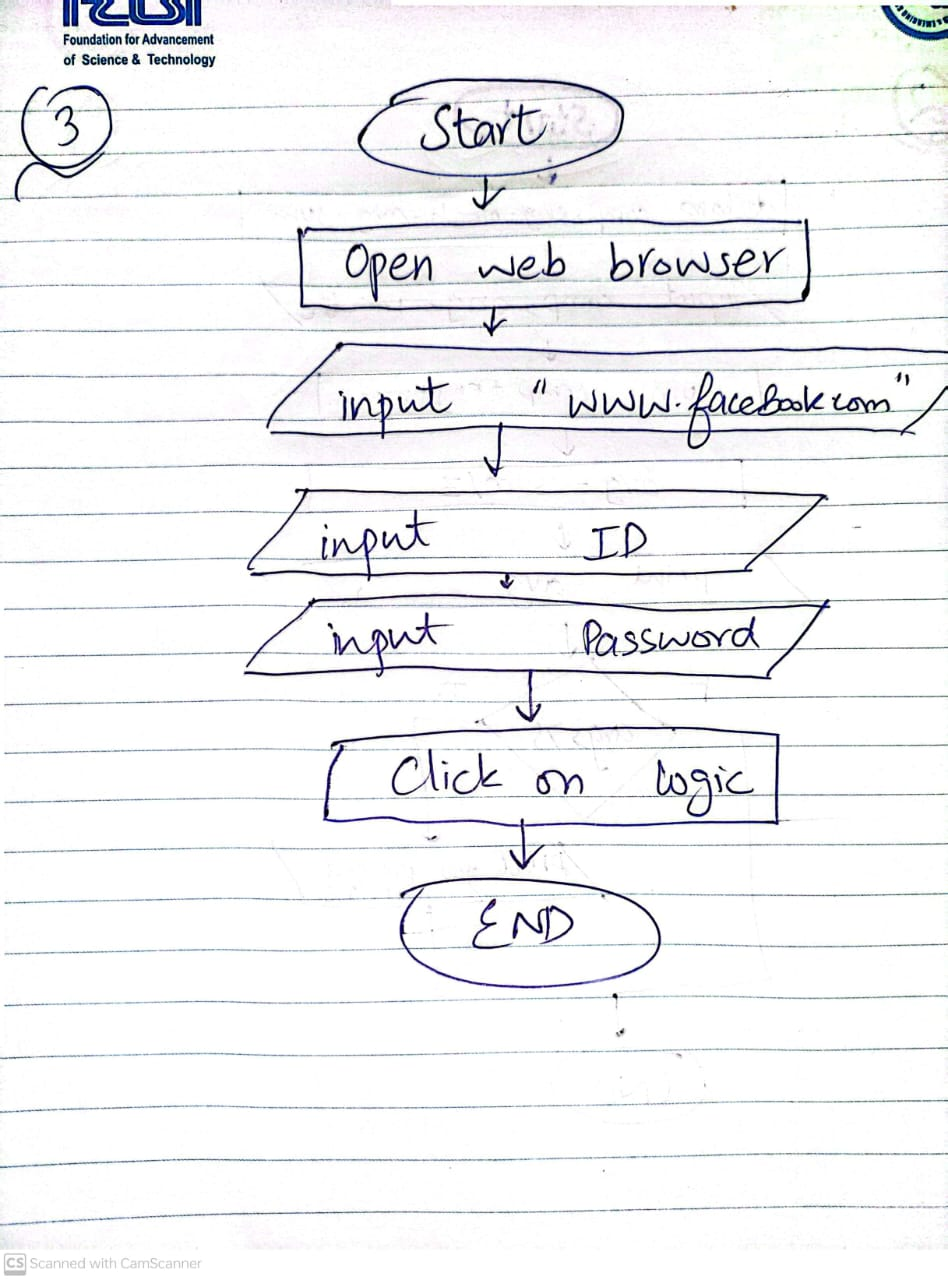 Foundation for Advancement
of Science & Technology
3
Start
Open web browser
input "www.facebook.com"
input ID
input Password
Click on logic
END
CS Scanned with CamScanner